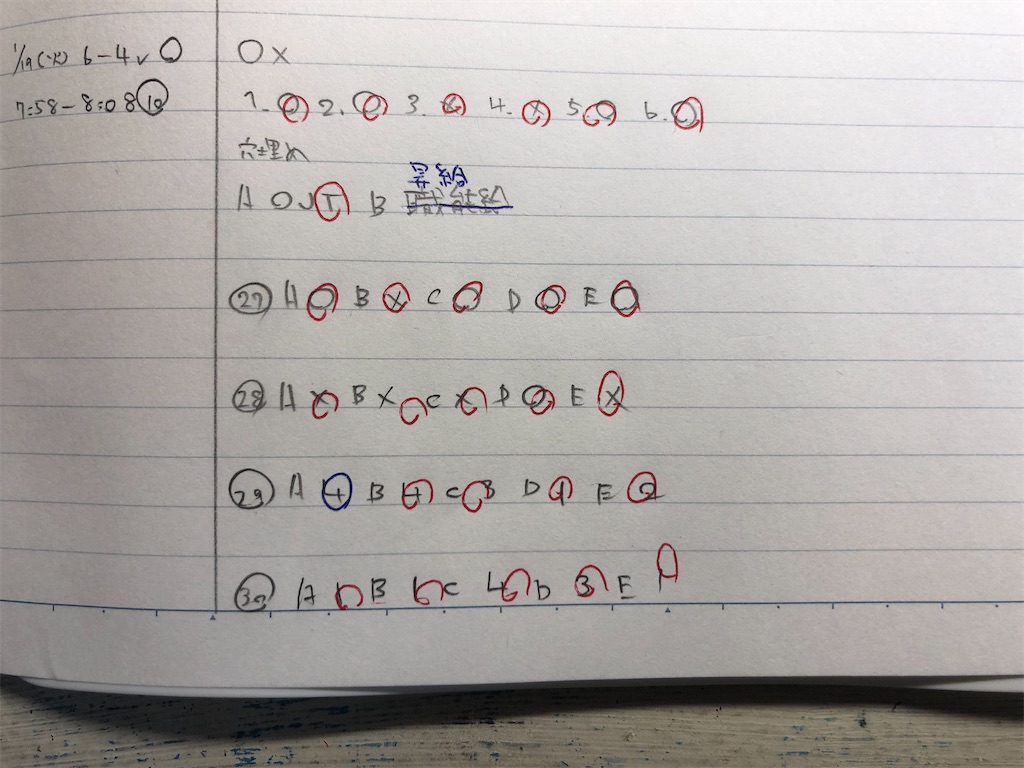 1/19(火) 6-4✓ ○
7:58-8:08 ⑩
○×
1. ○ 2. ○ 3. × 4. × 5. ○ 6. ○
穴埋め
A OJT B 昇給
㉗ A ○ B × C ○ D ○ E ○
㉘ A × B × C × D ○ E ×
㉙ A 4 B 4 C 3 D 1 E 2
㉚ A B C 4 D 3 E